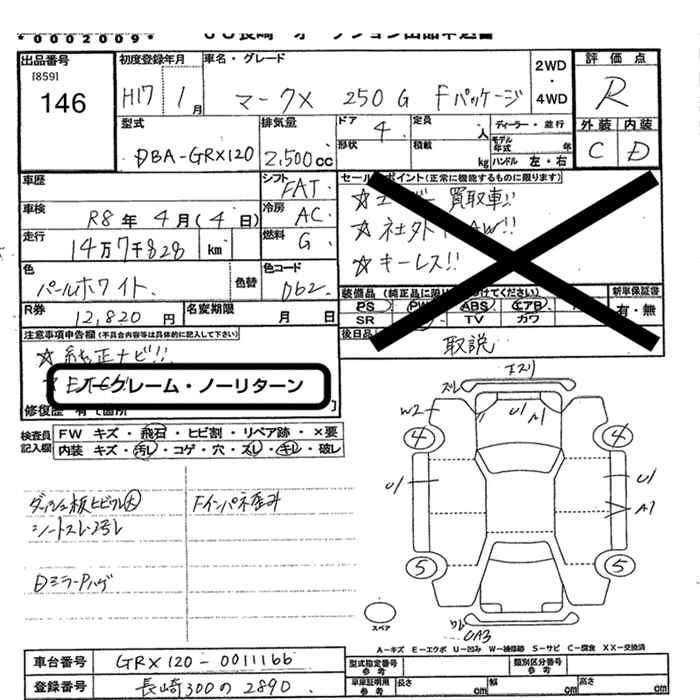 *0002009*
JU長崎 オークション出品申込書
出品番号
[859]
146
初度登録年月
H17 1月
車名・グレード
マークX 250G Fパッケージ
2WD
・
4WD
評価点
R
外装 内装
C D
型式
DBA-GRX120
排気量
2,500cc
ドア
4
定員
人
形状
積載
kg
ディーラー・並行
モデル年式 年
ハンドル 左・右
車歴
シフト
FAT
セールスポイント(正常に機能するものに限ります)
買取車!!
☆社外
AW!!
☆キーレス!!
車検
R8年 4月(4日)
冷房
AC
走行
14万7千828 km
燃料
G
色
パールホワイト
色替
色コード
062
装備品
PS PW ABS エアB
SR TV カワ
新車保証書
有・無
後日品
取説
R券
12,820円
名変期限
月 日
注意事項申告欄(不具合内容等は具体的に記入して下さい)
☆純正ナビ!!
ノークレーム・ノーリターン
修復歴 有
検査員記入欄
FW キズ・飛石・ヒビ割・リペア跡・×要
内装 キズ・汚レ・コゲ・穴・スレ・キレ・破レ
ダッシュ板ヒビワレ大
シートスレ・汚レ
Dミラーハゲ
Fインパネ歪み
スレ
W2
U1
A1
4
4
U1
U1
A1
5
5
スペア
ワレ
UA3
A-キズ E-エクボ U-凹み W-補修跡 S-サビ C-腐食 XX-交換済
車台番号
GRX120-0011166
登録番号
長崎300の2890
型式指定番号
参考
類別区分番号
参考
車庫証明用
参考
長さ
cm
幅
cm
高さ
cm